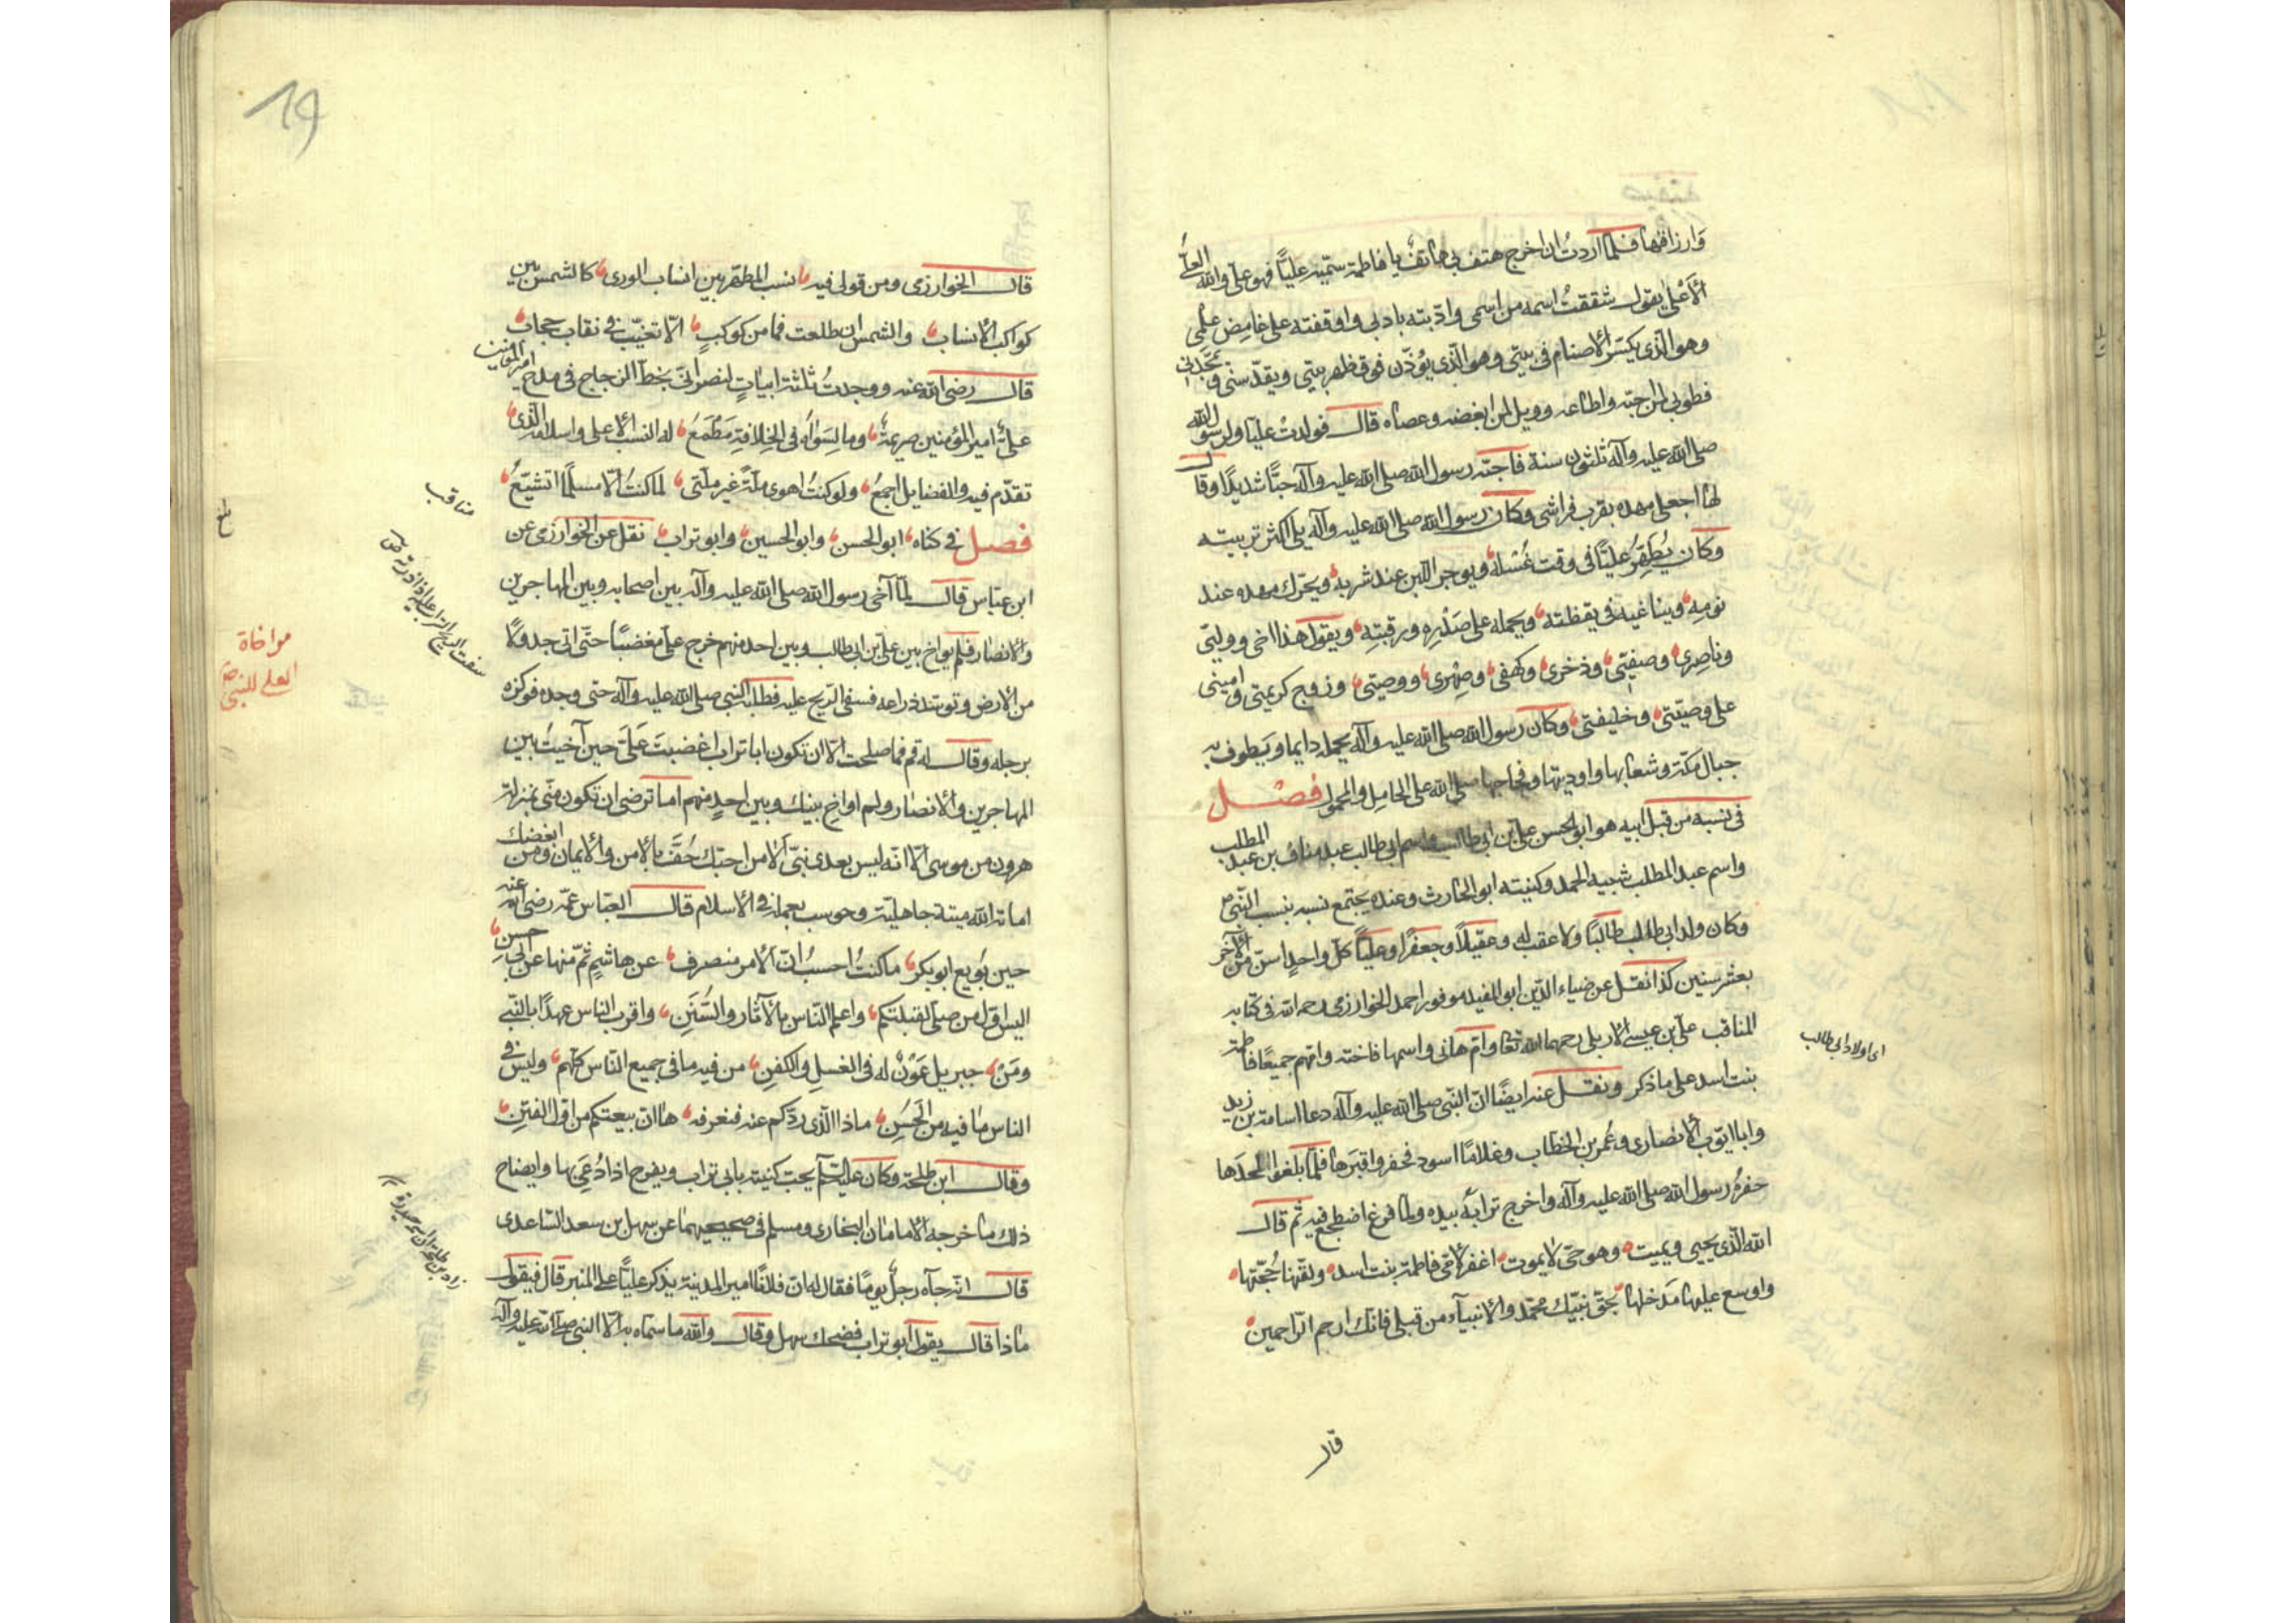 وارزاقها فلما اردتُ ان اخرج هتف بى هاتفٌ يا فاطمة سمّيه عليًّا فهو علىّ والله العلىّ
الأعلى يقول شققتُ اسمه من اسمى وادّبته بادبى واوقفته على غامض علمى
وهو الّذى يكسّر الأصنام فى بيتى وهو الّذى يؤذّن فوق ظهر بيتى ويقدّسنى ويمجّدنى
فطوبى لمن احبّه واطاعه وويل لمن ابغضه وعصاه قال فولدتُ عليًّا ولرسول الله
صلى الله عليه وآله ثلثون سنة فاحبّه رسول الله صلى الله عليه وآله حبًّا شديدًا وقال
لها اجعلى مهده بقرب فراشى وكان رسول الله صلى الله عليه وآله يلى اكثر تربيته
وكان يُطهّرُ عليًّا فى وقت غُسله ويوجر اللبن عند شربه ويحرّك مهده عند
نومه ويناغيه فى يقظته ويحمله على صدره ورقبته ويقول هذا اخى ووليّى
وناصرى وصفيّى وذخرى وكهفى وصهرى ووصيّى وزوج كريمتى وامينى
على وصيّتى وخليفتى وكان رسول الله صلى الله عليه وآله يحمله دايما ويطوف به
جبال مكة وشعابها واوديتها وفجاجها صلى الله على الحامل والمحمول فصل
فى نسبه من قبل ابيه هو ابو الحسن على بن ابى طالب واسم ابى طالب عبد مناف بن عبد المطلب
واسم عبد المطلب شيبه الحمد وكنيته ابو الحارث وعنده يجتمع نسبه بنسب النبىّ ص
وكان ولد ابى طالب طالبًا ولا عقب له وعقيلًا وجعفرًا وعليًّا كلّ واحدٍ اسنّ من الآخر
بعشر سنين كذا نقل عن ضياء الدّين ابو المفيد موفور احمد الخوارزمى رحمه الله فى كتابه
المناقب على بن عيسى الاربلى رحمهما الله تعا وامّ هانى واسمها فاخته وامّهم جميعًا فاطمة
بنت اسد على ما ذكر ونقل عنه ايضًا انّ النّبى صلى الله عليه وآله دعا اسامة بن زيد
وابا ايّوب الأنصارى وعُمر بن الخطّاب وغلامًا اسود فحفروا قبرها فلما بلغوا لحدَها
حفرهُ رسول الله صلى الله عليه وآله واخرج ترابهُ بيده ولما فرغ اضطجع فيه ثم قال
الله الّذى يحيى ويميت وهو حىّ لا يموت اغفر لأمّى فاطمة بنت اسد ولقّنها حُجّتها
واوسع عليها مَدخلها بحقّ نبيّك محمّد والأنبيآء من قبلى فانّك ارحم الرّاحمين
قال
اى اولاد ابى طالب
19
قال الخوارزمى ومن قولى فيه نسب المطهّر بين انساب الورى كالشمس بين
كواكب الأنساب والشمس ان طلعت فما من كوكبٍ الّا تغيّب فى نقاب حجاب
قال رضى الله عنه ووجدتُ ثلثة ابيات لنصرانىّ بخطّ الزجاج فى مدح امير المؤمنين
علىٌّ امير المؤمنين صريمةً وما لسواه فى الخلافةِ مَطْمَعُ له النسب الأعلى واسلامه الّذى
تقدّم فيه والفضايل اجمعُ ولو كنتُ اهوى ملّةً غير ملّتى لما كنتُ الّا مسلمًا اتشيّعُ
فصل فى كناه ابو الحسن وابو الحسين وابو تراب نقل عن الخوارزمى عن
ابن عبّاس قال لمّا آخى رسول الله صلى الله عليه وآله بين اصحابه وبين المهاجرين
والأنصار فلم يواخ بين على بن ابى طالب وبين احد منهم خرج علىّ مغضبًا حتّى اتى جدولًا
من الأرض وتوسّد ذراعه فسفى الرّيح عليه فطلبه النبى صلى الله عليه وآله حتى وجده فوكزه
برجله وقال له قم فما صلحت الّا ان تكون ابا تراب اغضبتَ علىّ حين آخيتُ بين
المهاجرين والأنصار ولم اواخِ بينك وبين احدٍ منهم اما ترضى ان تكون منّى بمنزلة
هرون من موسى الّا انّه ليس بعدى نبىّ الا من احبّك حُفّ بالأمن والأيمان ومن ابغضك
اماته الله ميتة جاهليّة وحوسب بعمله فى الأسلام قال العبّاس عمّه رضى الله عنه
حين بُويع ابو بكر ما كنتُ احسبُ انّ الأمر منصرف عن هاشمٍ ثمّ منها عن ابى حسن
اليس اوّل من صلّى لقبلتكم واعلم النّاس بالآثار والسُّنَنِ واقرب الناس عهدًا بالنّبى
ومَن جبريل عَوْنٌ له فى الغسل والكفن من فيه ما فى جميع النّاس كلّهم وليس فى
الناس ما فيه من الحَسَنِ ماذا الّذى ردّكم عنه فنعرفه ها انّ بيعتكم من اوّل الفتن
وقال ابن طلحة وكان عليّا يحبّ كنيته بابى تراب ويفرح اذا دُعِىَ بها وايضاح
ذلك ما خرجه الأمامان البخارى ومسلم فى صحيحيهما عن سهل بن سعد السّاعدى
قال انّه جآءه رجلٌ يومًا فقال له انّ فلانًا امير المدينة يذكر عليًّا على المنبر قال فيقول
ماذا قال يقول ابو تراب فضحك سهل وقال والله ما سمّاه به الّا النبى صلى الله عليه وآله
مناقب
مواخاة
العلى للنبى ص
بلغ